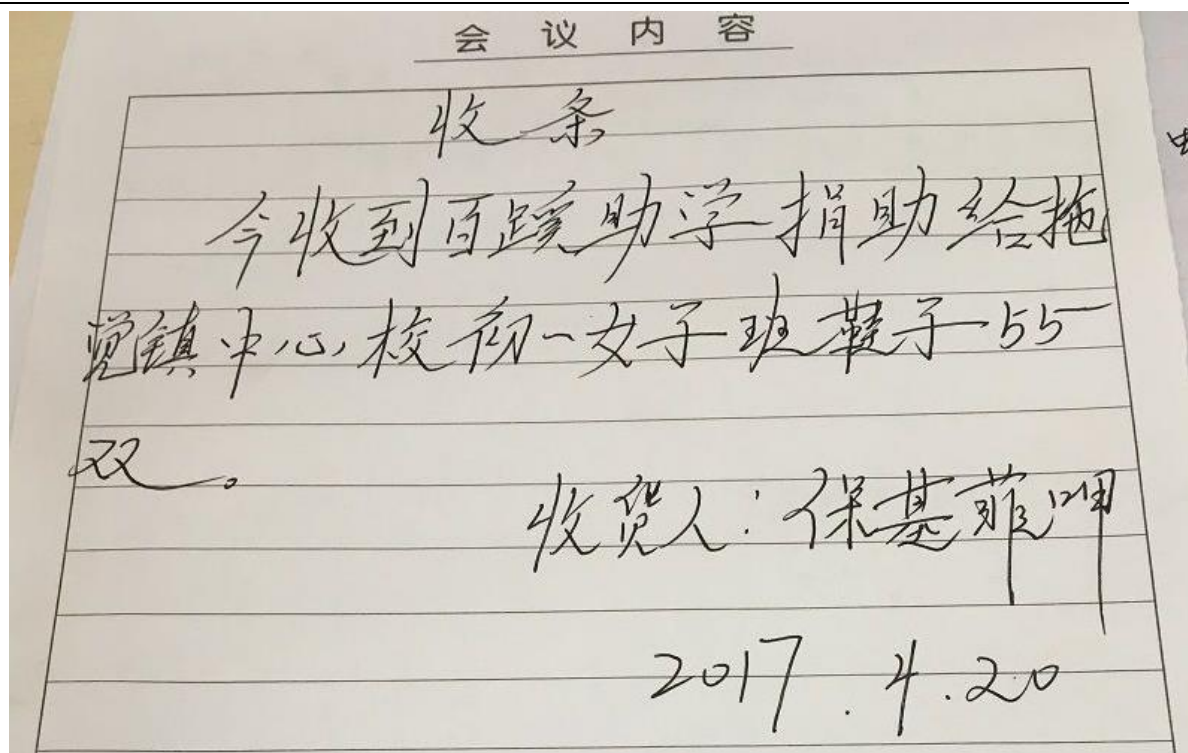 会议内容
收条
今收到百蹊助学捐助给拖
觉镇中心校初一女子班鞋子55
双。
收货人:保基菲呷
2017.4.20